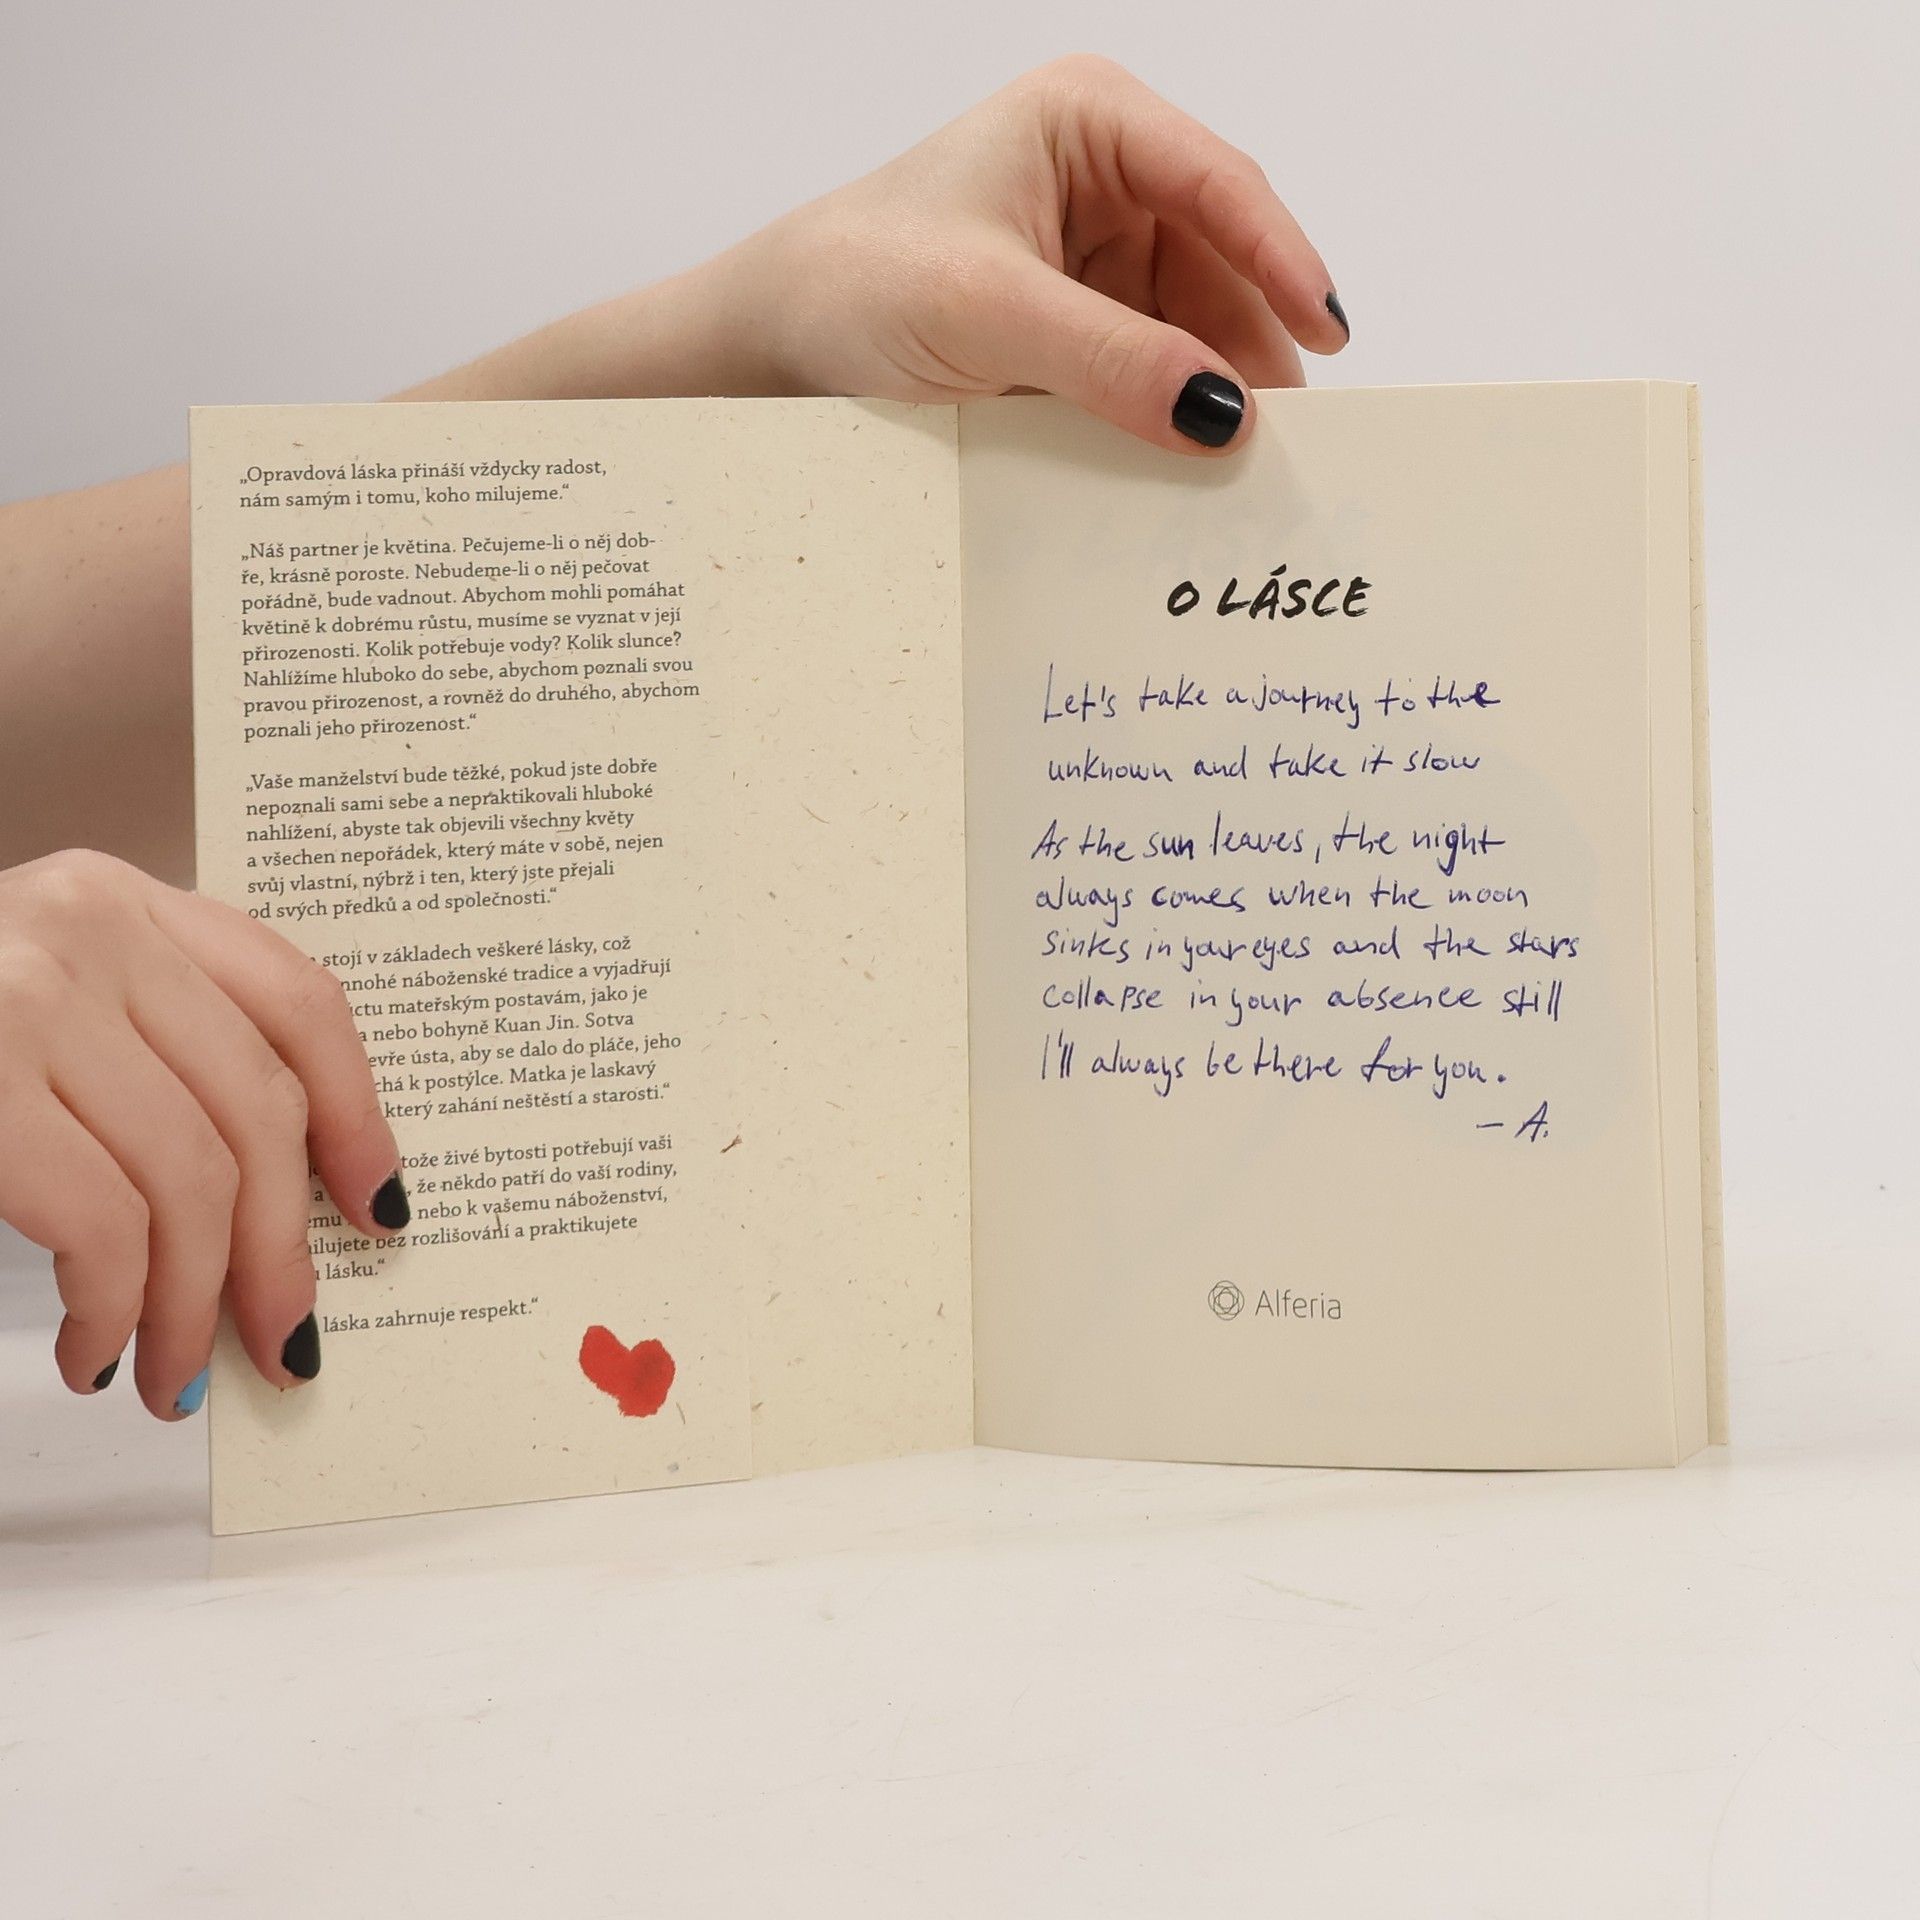 „Opravdová láska přináší vždycky radost,
nám samým i tomu, koho milujeme.“
„Náš partner je květina. Pečujeme-li o něj dob-
ře, krásně poroste. Nebudeme-li o něj pečovat
pořádně, bude vadnout. Abychom mohli pomáhat
květině k dobrému růstu, musíme se vyznat v její
přirozenosti. Kolik potřebuje vody? Kolik slunce?
Nahlížíme hluboko do sebe, abychom poznali svou
pravou přirozenost, a rovněž do druhého, abychom
poznali jeho přirozenost.“
„Vaše manželství bude těžké, pokud jste dobře
nepoznali sami sebe a nepraktikovali hluboké
nahlížení, abyste tak objevili všechny květy
a všechen nepořádek, který máte v sobě, nejen
svůj vlastní, nýbrž i ten, který jste přejali
od svých předků a od společnosti.“
stojí v základech veškeré lásky, což
mnohé náboženské tradice a vyjadřují
úctu mateřským postavám, jako je
nebo bohyně Kuan Jin. Sotva
ústa, aby se dalo do pláče, jeho
k postýlce. Matka je laskavý
který zahání neštěstí a starosti.“
živé bytosti potřebují vaši
že někdo patří do vaší rodiny,
nebo k vašemu náboženství,
milujete bez rozlišování a praktikujete
lásku.“
láska zahrnuje respekt.“
O LÁSCE
Let's take a journey to the
unknown and take it slow
As the sun leaves, the night
always comes when the moon
sinks in your eyes and the stars
collapse in your absence still
I'll always be there for you.
– A.
Alferia